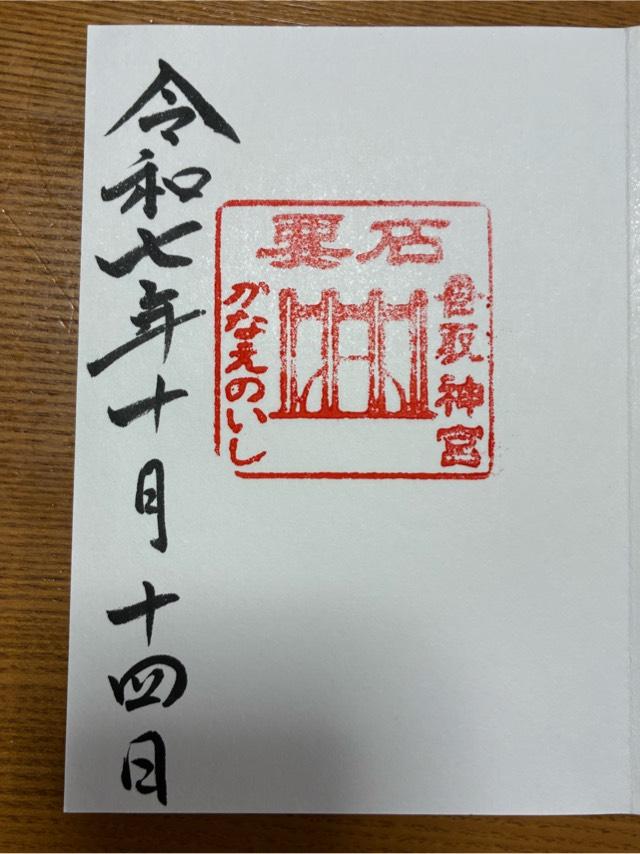 要石
香取神宮
かなえのいし
令和七年十月十四日